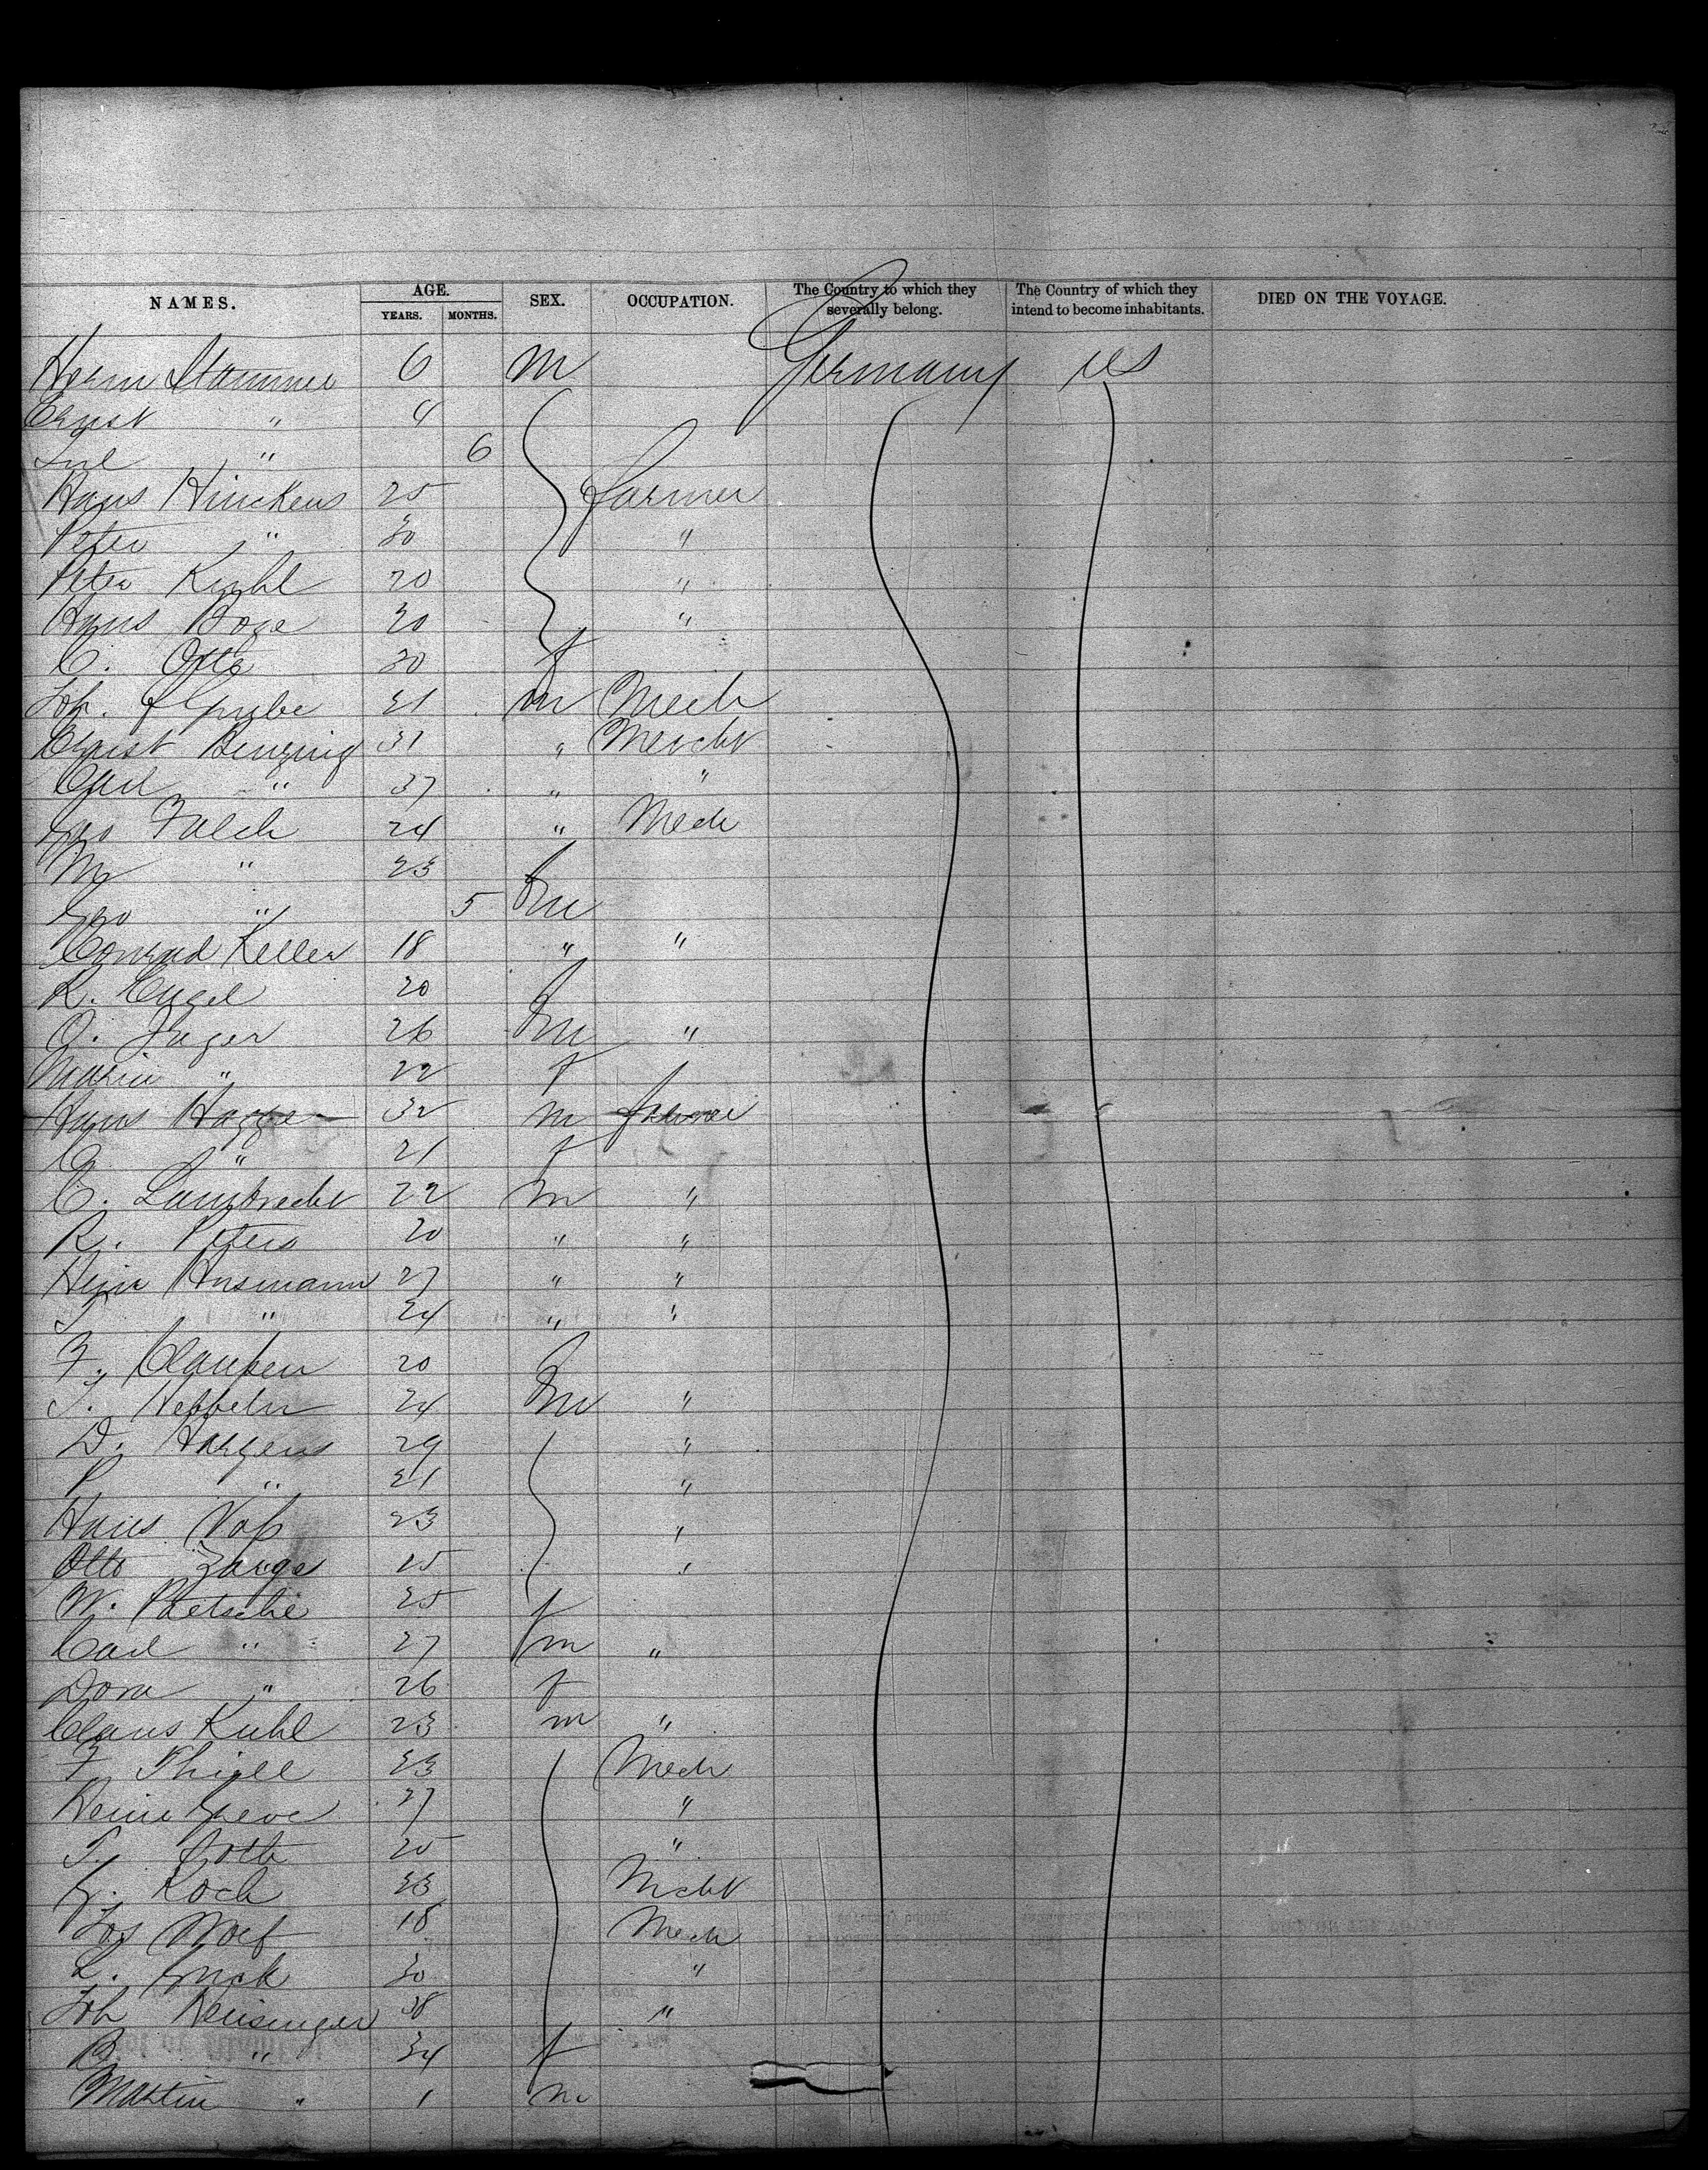 NAMES. AGE. SEX. OCCUPATION. The Country to which they severally belong. The Country of which they intend to become inhabitants. DIED ON THE VOYAGE.
YEARS. MONTHS.
Herm Stammer 6 m Germany US
Ernst " 4
" 6
Hans Hinckens 25 farmer
Peter " 30 "
Peter Kuhl 20 "
Hans Boge 20 "
C. Otto 20 f
Joh. Grube 21 m Mech
Ernst Benzing 31 " Mercht
Carl " 37 " "
Geo Falch 24 " Mech
" 23 f
Geo " 5 m
Conrad Keller 18 " "
R. Engel 20 f
O. Jager 26 m "
Maria " 22 f
Hans Hagge 32 m farmer
C. " 21 f
C. Lambrecht 22 m "
R. Peters 20 " "
Heinr Husmann 27 " "
" 24 " "
F. Claußen 20 f
J. Hebbeln 24 m "
D. Hargens 29 "
P. " 21 "
Hans Voß 23 "
Otto Zauge 15 "
W. 25 f
Carl " 27 m "
Dora " 26 f
Claus Kuhl 23 m "
F. 23 Mech
Heinr Greve 27 "
25 "
G. Koch 23 Mcht
Jos 18 Mech
L. 30 "
Joh Reisinger 38 "
B. " 34 f
Martin " 1 m